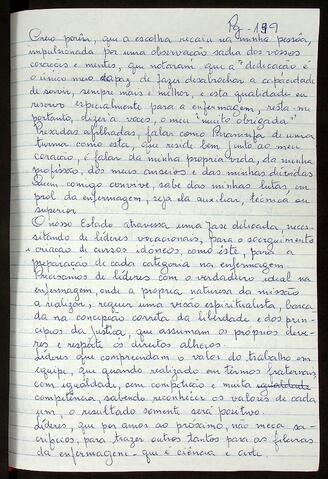 Pg - 199
Creio porém, que a escolha recaiu na minha pessoa,
impulsionada por uma observação sadia dos vossos
corações e mentes, que notaram que a "dedicação é
o único meio capaz de fazer desabrochar a capacidade
de servir, sempre mais e melhor, e esta qualidade eu
reservo especialmente para a enfermagem, resta-me
portanto, dizer a vocês, o meu "muito obrigada."
Prezadas afilhadas, falar como Paraninfa de uma
turma como esta, que reside bem junto ao meu
coração, é falar da minha própria vida, da minha
profissão, dos meus anseios e das minhas dúvidas
Quem comigo convive, sabe das minhas lutas, em
prol da enfermagem, seja ela auxiliar, técnica ou
superior.
O nosso Estado atravessa uma fase delicada, neces-
sitando de líderes vocacionais, para o soerguimento
e criação de cursos idôneos, como êste, para a
preparação de cada categoria na enfermagem.
Precisamos de líderes com o verdadeiro ideal na
enfermagem, onde a própria natureza da missão
a realizar, requer uma visão espiritualista, basea
da na concepção correta da liberdade e dos prin-
cípios da justiça, que assumam os próprios deve-
res e respeite os direitos alheios.
Líderes que compreendam o valor do trabalho em
equipe, que quando realizado em termos fraternais
com igualdade, sem competição e muita igualdade
competência, sabendo reconhecer os valores de cada
um, o resultado somente será positivo.
Líderes, que por amor ao próximo, não meça sa-
crifícios, para trazer outros tantos para as fileiras
da enfermagem - que é ciência e arte.